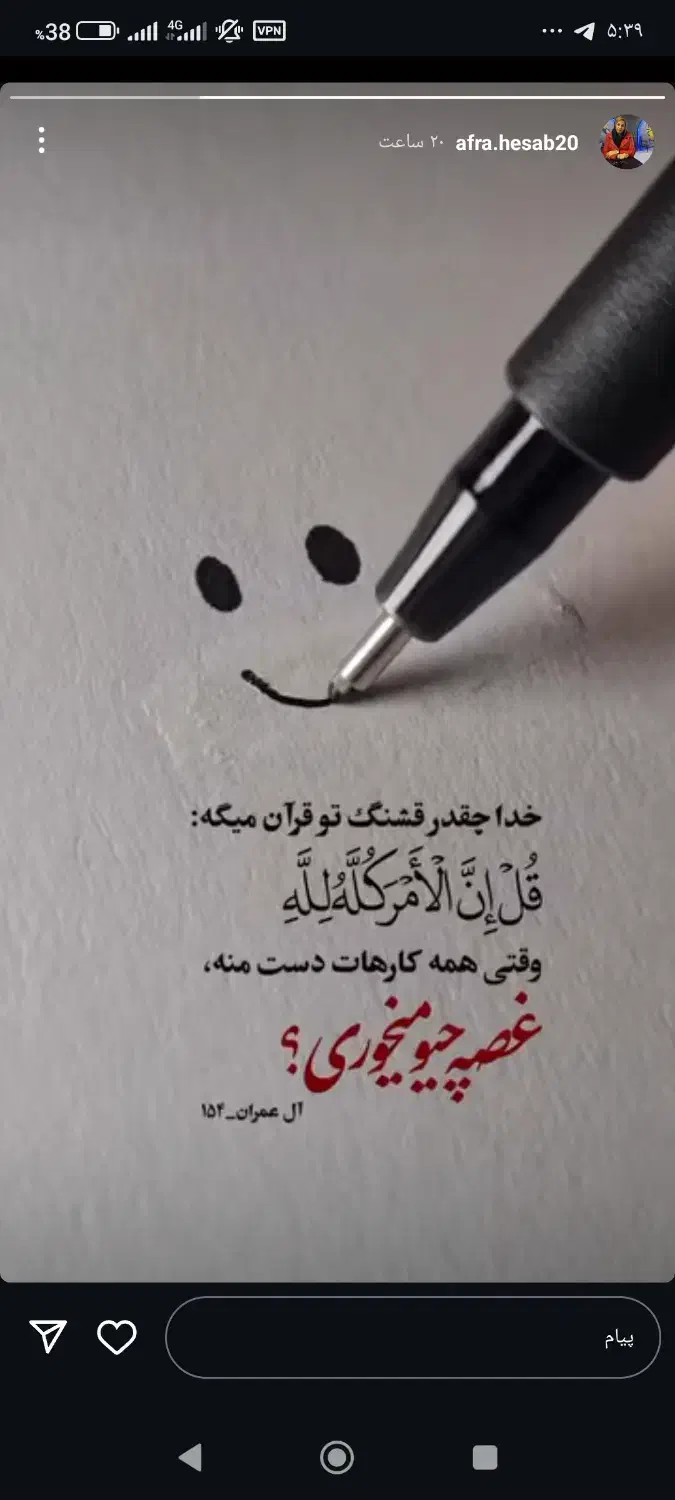 %38 4G VPN ... ۵:۳۹
afra.hesab20 ۲۰ ساعت
خدا چقدر قشنگ تو قرآن میگه:
قُلْ إِنَّ الْأَمْرَ كُلَّهُ لِلَّهِ
وقتی همه کارهات دست منه،
غصه چیو میخوری؟
آل عمران_۱۵۴
پیام